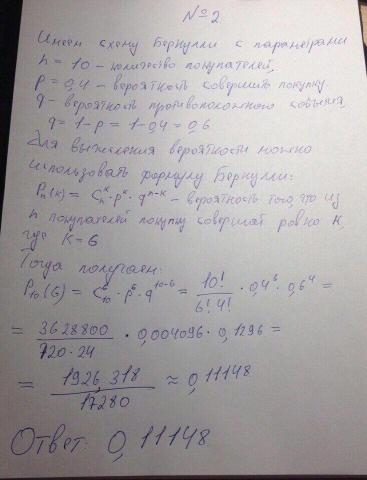 №2.
Имеем схему Бернулли с параметрами
n = 10 - количество покупателей,
p = 0,4 - вероятность совершить покупку
q - вероятность противоположного события,
q = 1-p = 1-0,4 = 0,6
Для вычисления вероятности можно
использовать формулу Бернулли:
Pn(k) = Cₙᵏ · pᵏ · qⁿ⁻ᵏ - вероятность того, что из
n покупателей покупку совершат ровно k,
где k = 6
Тогда получаем:
P₁₀(6) = C₁₀⁶ · p⁶ · q¹⁰⁻⁶ = 10!/6!4! · 0,4⁶ · 0,6⁴ =
= 3628800/720·24 · 0,004096 · 0,1296 =
= 1926,318/17280 ≈ 0,11148
Ответ: 0,11148